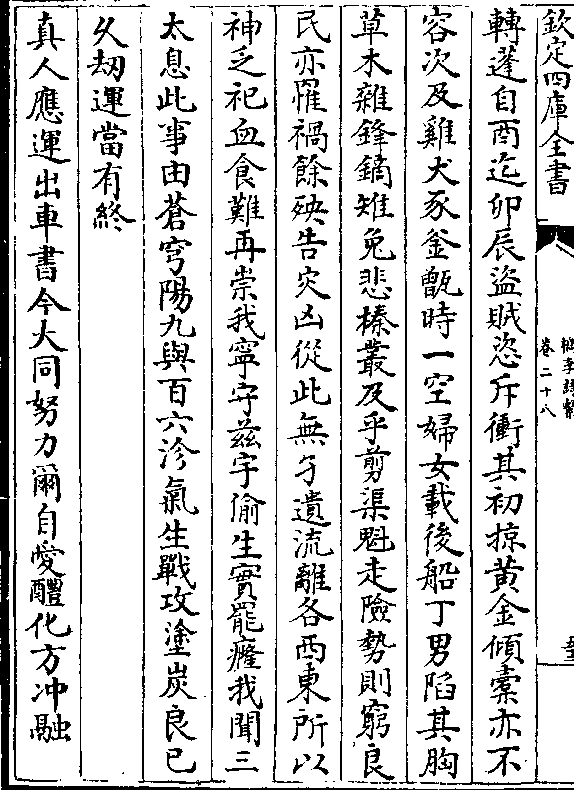 欽定四庫全書
卷二十八
轉蓬自酉迄卯辰盜賊恣斥衝其初掠黄金傾橐亦不
容次及雞犬豕釜甑時一空婦女載後船丁男陷其胸
草木雜鋒鏑雉兔悲榛叢及乎剪渠魁走險勢則窮良
民亦罹禍餘殃告灾凶從此無孑遺流離各西東所以
神乏祀血食難再崇我寧守兹宇偷生實罷癃我聞三
太息此事由蒼穹陽九與百六沴氣生戰攻塗炭良已
久刼運當有終
真人應運出車書今大同努力爾自愛醴化方冲融